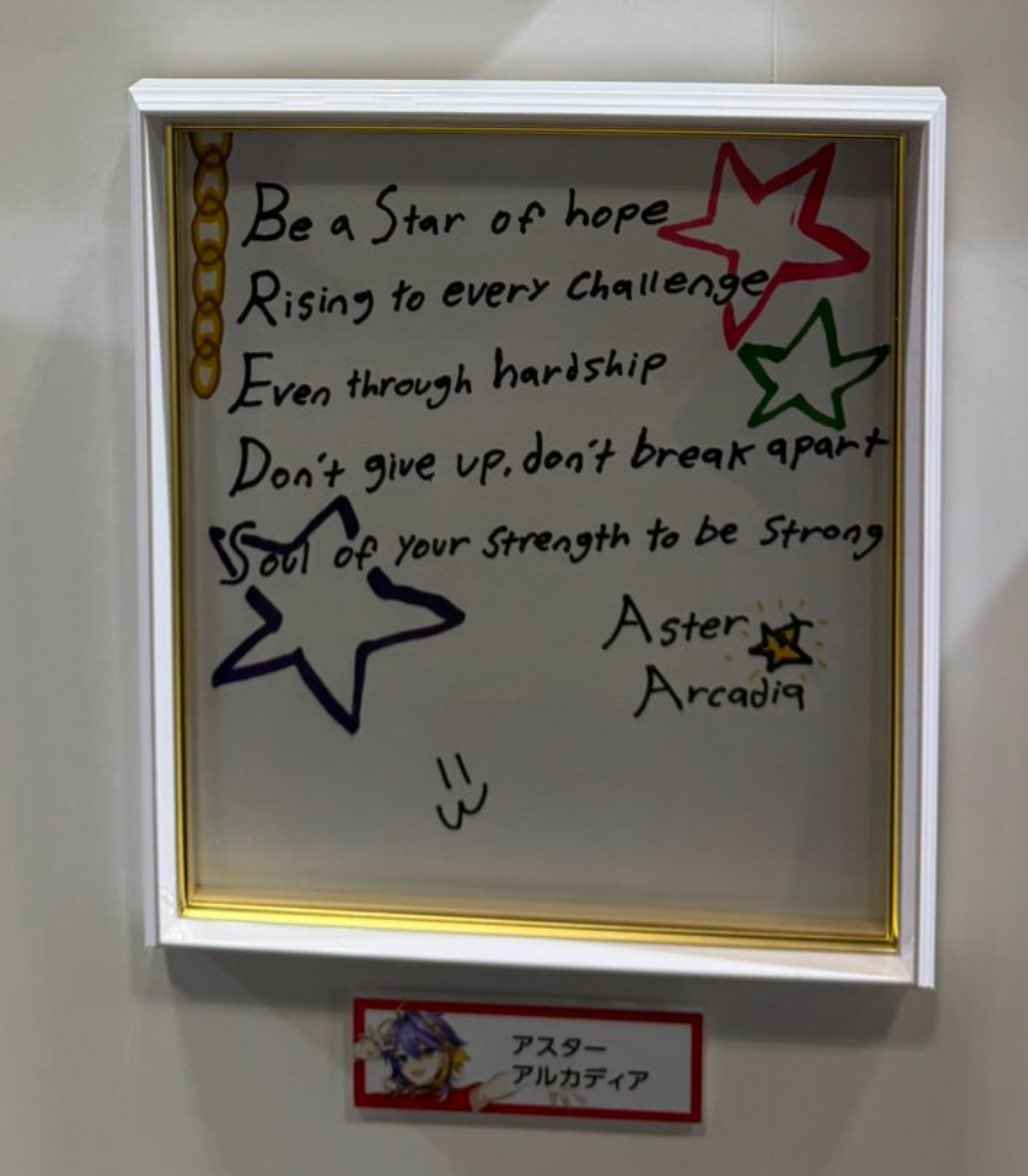 Be a Star of hope
Rising to every challenge
Even through hardship
Don't give up, don't break apart
Soul of your strength to be strong
Aster
Arcadia
アスター
アルカディア